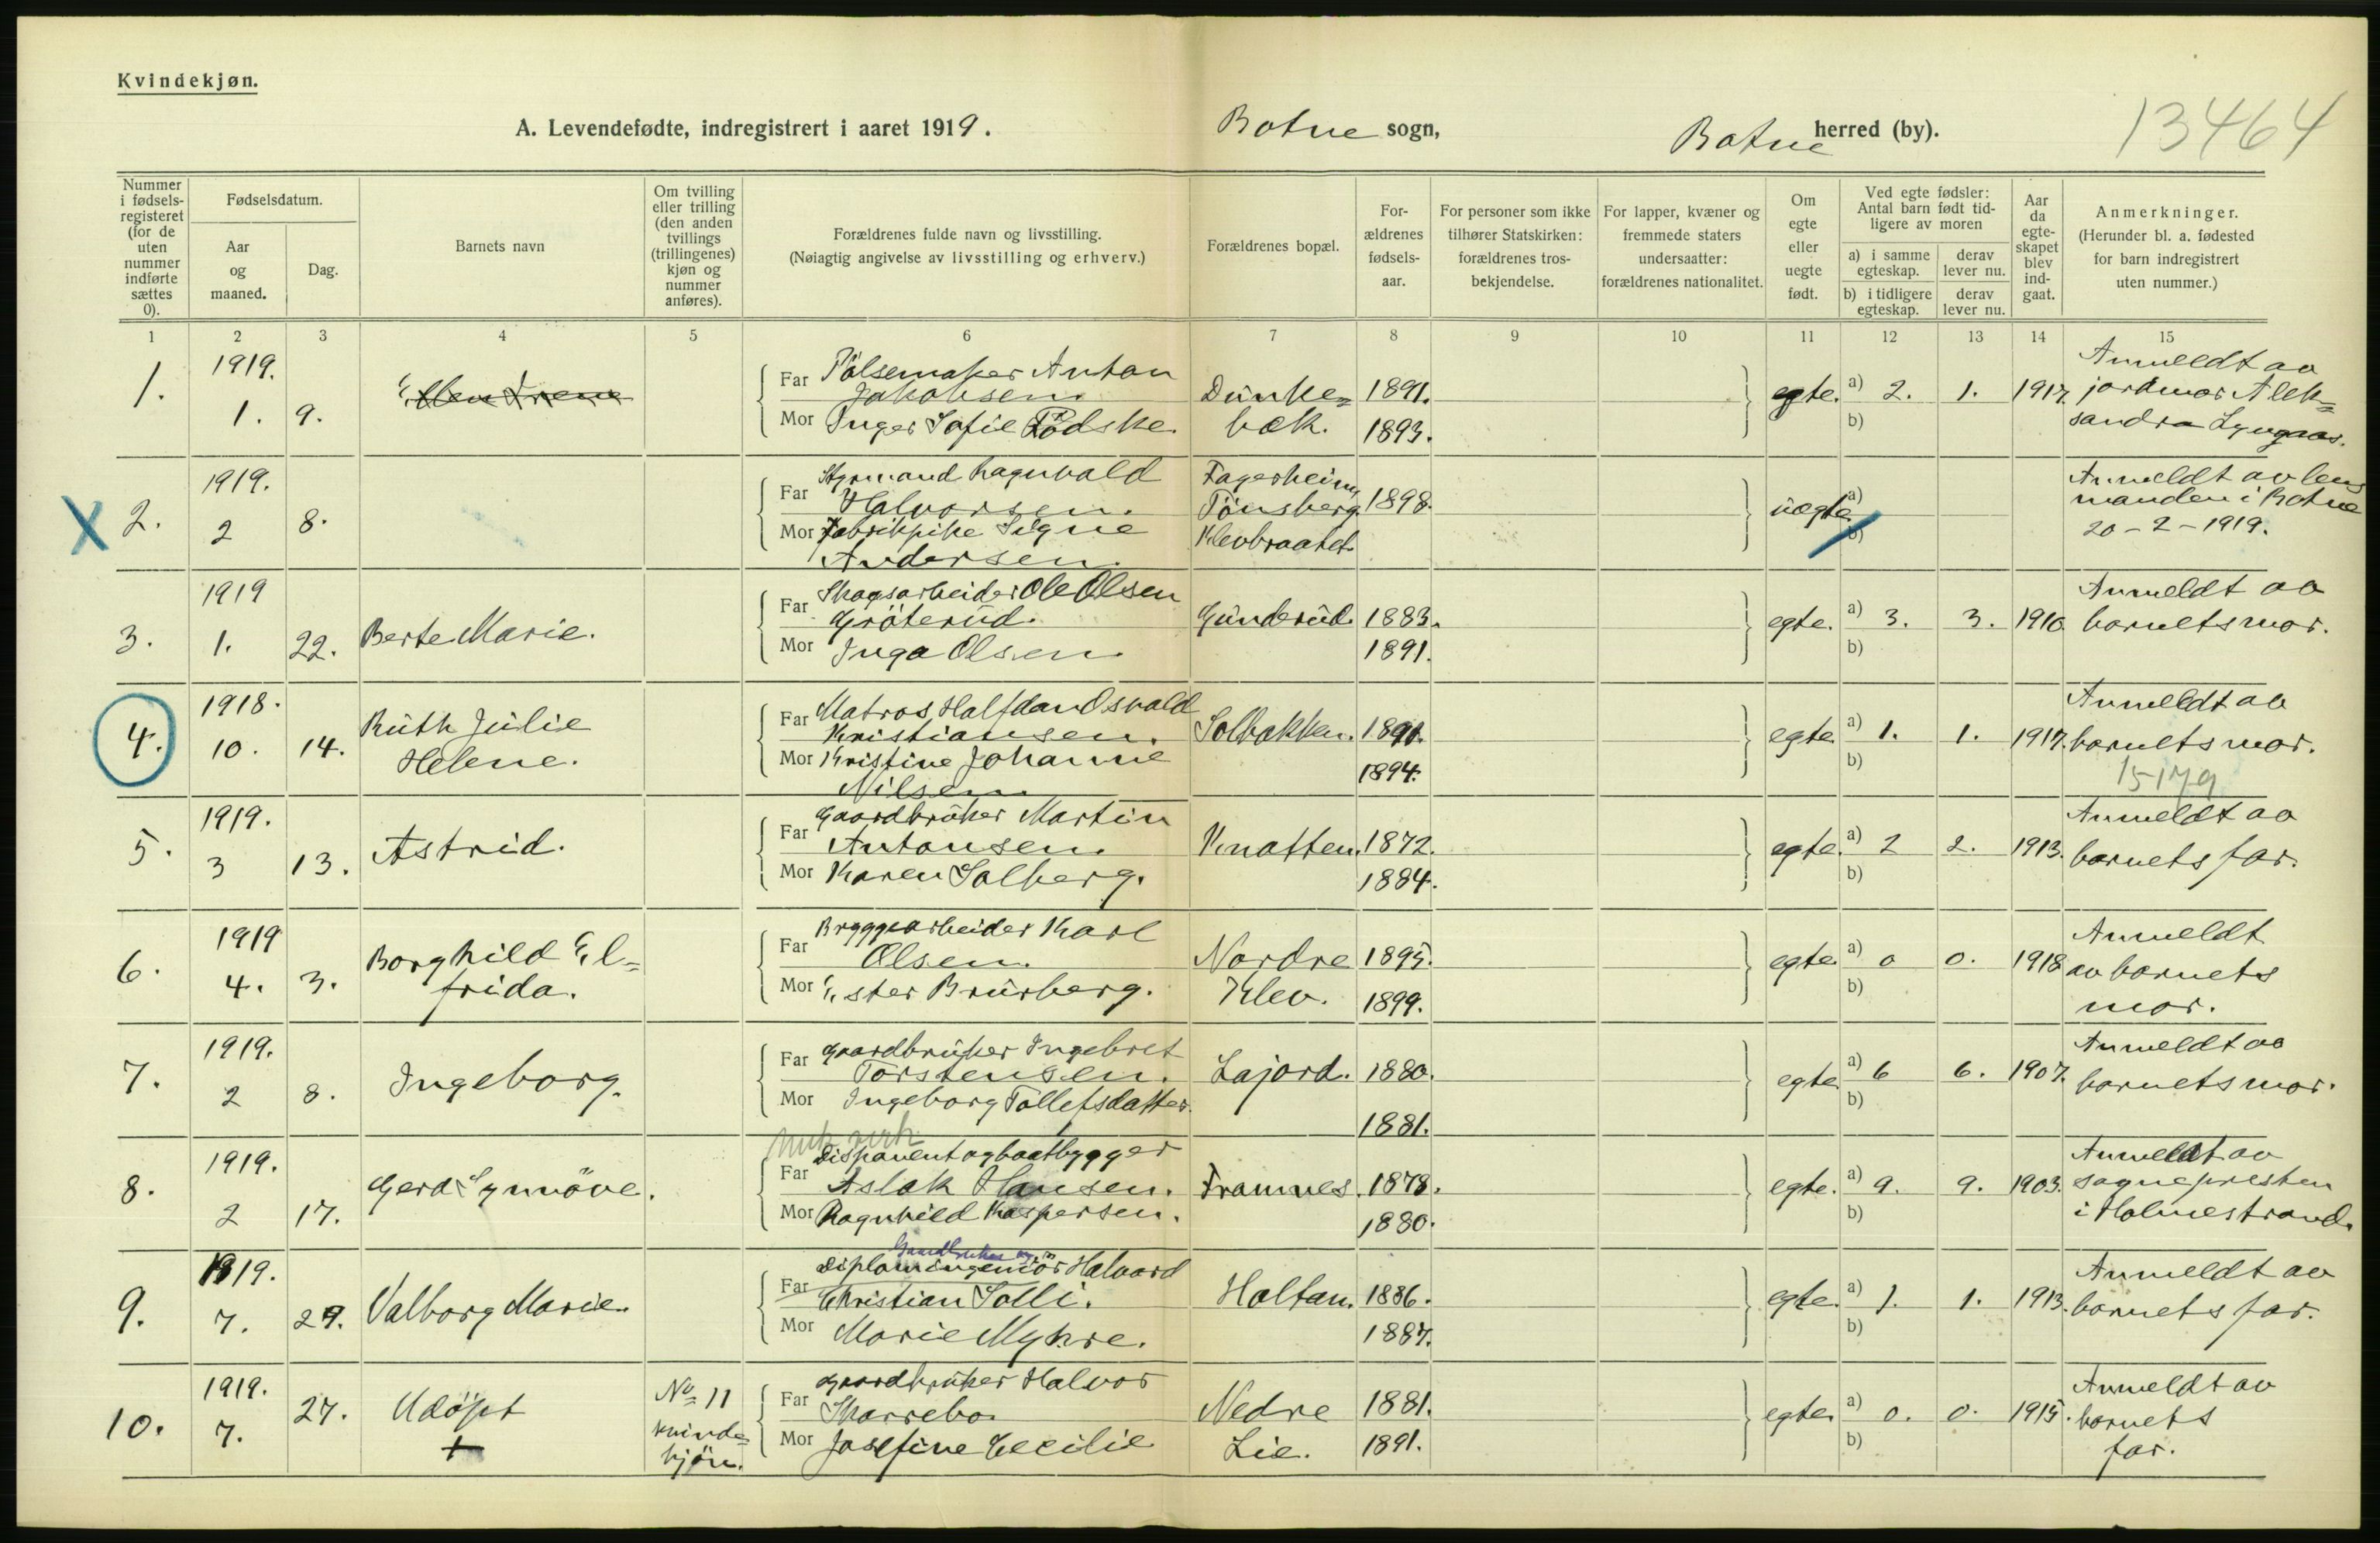 Kvindekjøn.
A. Levendefødte, indregistrert i aaret 1919. Botne sogn, Botne herred (by). 13464
Nummer i fødsels-registeret (for de uten nummer indførte sættes 0).
Fødselsdatum.
Aar og maaned.
Dag.
Barnets navn
Om tvilling eller trilling (den anden tvillings (trillingenes) kjøn og nummer anføres).
Forældrenes fulde navn og livsstilling.
(Nøiagtig angivelse av livsstilling og erhverv.)
Forældrenes bopæl.
For-ældrenes fødsels-aar.
For personer som ikke tilhører Statskirken: forældrenes tros-bekjendelse.
For lapper, kvæner og fremmede staters undersaatter: forældrenes nationalitet.
Om egte eller uegte født.
Ved egte fødsler: Antal barn født tid-ligere av moren
a) i samme egteskap. derav lever nu.
b) i tidligere egteskap. derav lever nu.
Aar da egte-skapet blev ind-gaat.
Anmerkninger.
(Herunder bl. a. fødested for barn indregistrert uten nummer.)
1 2 3 4 5 6 7 8 9 10 11 12 13 14 15
1. 1919. 1. 9. Ellen Irene
Far Pölsemaker Anton Jakobsen.
Mor Inger Sofie Rödske.
Dunke=bæk. 1891. 1893. egte. a) 2. 1. b) 1917.
Anmeldt av
jordmor Alek=
sandra Lyngaas.
X 2. 1919. 2 8.
Far Styrmand Ragnvald Halvorsen.
Mor Fabrikpike Signe Andersen.
Fagerheim, Tönsberg. Klevbraatet. 1898. uegte. a) b)
Anmeldt av lens
manden i Botne
20-2-1919.
3. 1919 1. 22. Berte Marie.
Far Skogsarbeider Ole Olsen Gröterud.
Mor Inga Olsen.
Gunderud. 1883. 1891. egte. a) 3. 3. b) 1910.
Anmeldt av
barnets mor.
4. 1918. 10. 14. Ruth Julie Helene.
Far Matros Halfdan Osvald Kristiansen.
Mor Kristine Johanne Nilsen.
Solbakken. 1891. 1894. egte. a) 1. 1. b) 1917.
Anmeldt av
barnets mor.
15179
5. 1919. 3 13. Astrid.
Far Gaardbruker Martin Antonsen.
Mor Karen Solberg.
Knatten. 1872. 1884. egte. a) 2 2. b) 1913.
Anmeldt av
barnets far.
6. 1919 4. 3. Borghild El=frida.
Far Bryggearbeider Karl Olsen.
Mor Ester Brurberg.
Nordre Klev. 1895. 1899. egte. a) 0 0. b) 1918
Anmeldt
av barnets
mor.
7. 1919. 2 8. Ingeborg.
Far Gaardbruker Ingebret Torstensen.
Mor Ingeborg Tollefsdatter.
Lajord. 1880. 1881. egte. a) 6 6. b) 1907.
Anmeldt av
barnets mor.
8. 1919. 2 17. Gerd Synnöve.
Far Disponent og baatbygger Aslak Hansen.
Mor Ragnhild Kaspersen.
Framnes. 1878. 1880. egte. a) 9. 9. b) 1903.
Anmeldt av
sognepresten
i Holmestrand.
9. 1919. 7. 29. Valborg Marie.
Gaardbruker og
Far Diplomingeniör Halvard Christian Solli.
Mor Marie Myhre.
Holtan. 1886. 1887. egte. a) 1. 1. b) 1913.
Anmeldt av
barnets far.
10. 1919. 7. 27. Udöpt + No 11 kvinde=kjön.
Far Gaardbruker Halvor Skarrebo.
Mor Josefine Cecilie
Nedre Lie. 1881. 1891. egte. a) 0. 0. b) 1915.
Anmeldt av
barnets
far.